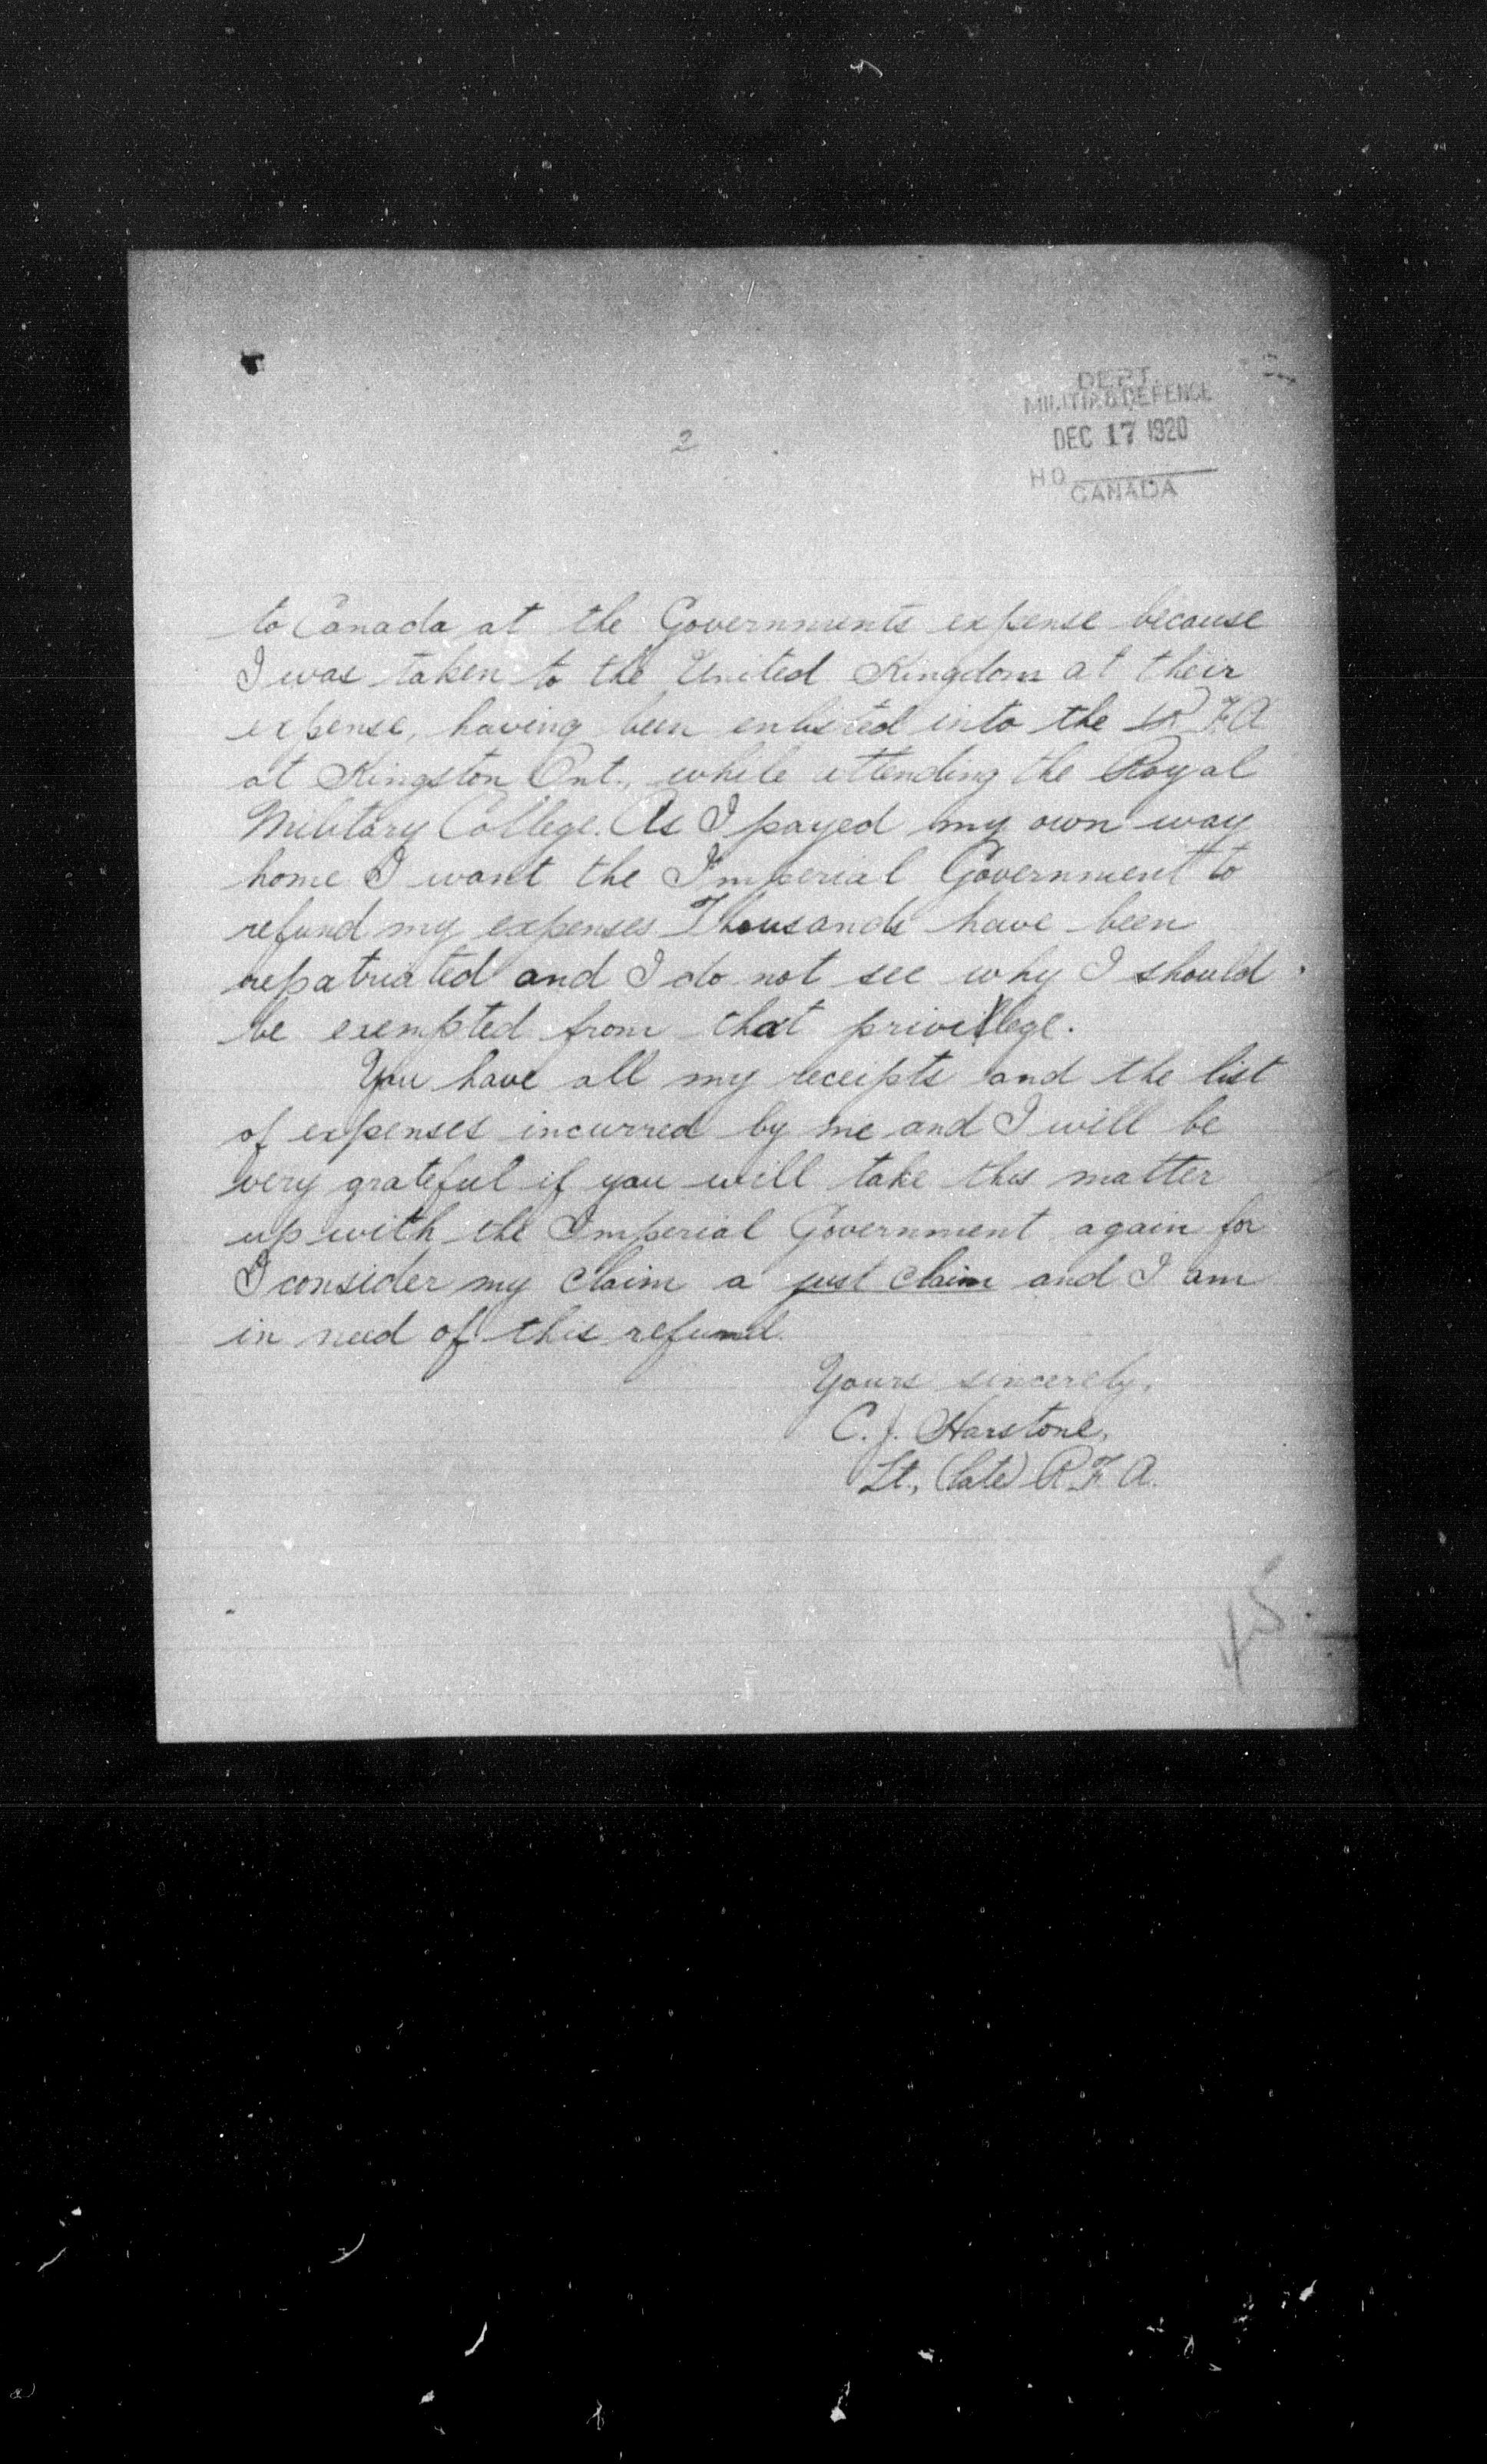 DEPT.
MILITIA & DEFENCE
DEC 17 1920
H Q
CANADA
2
to Canada at the Governments expense because
I was taken to the United Kingdom at their
expense, having been enlisted into the R F A
at Kingston Ont., while attending the Royal
Military College. As I payed my own way
home I want the Imperial Government to
refund my expenses Thousands have been
repatriated and I do not see why I should
be exempted from that privellege.
You have all my receipts and the list
of expenses incurred by me and I will be
very grateful if you will take this matter
up with the Imperial Government again for
I consider my claim a just claim and I am
in need of this refund.
Yours sincerely,
C. J. Harstone,
Lt., (late) R F A.
45